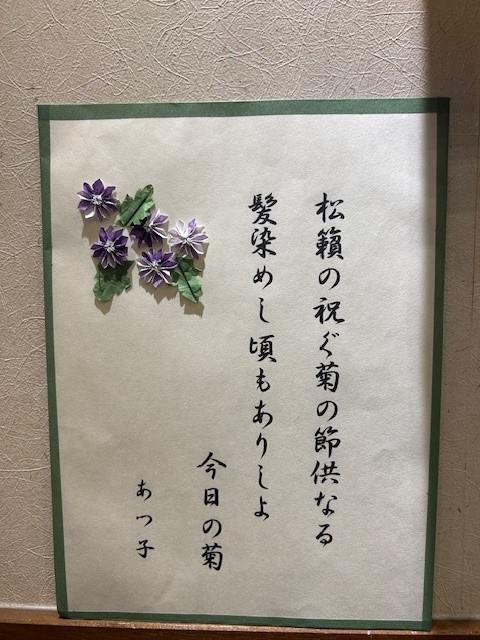 松籟の祝ぐ菊の節供なる
髪染めし頃もありしよ
今日の菊
あつ子